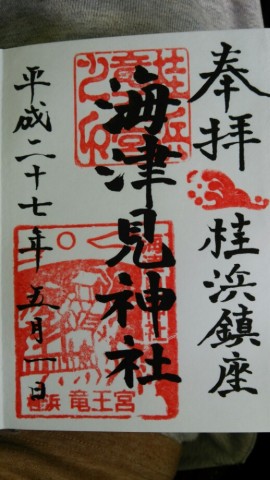 奉拝
桂浜鎮座
海津見神社
平成二十七年五月一日
桂浜 竜王宮